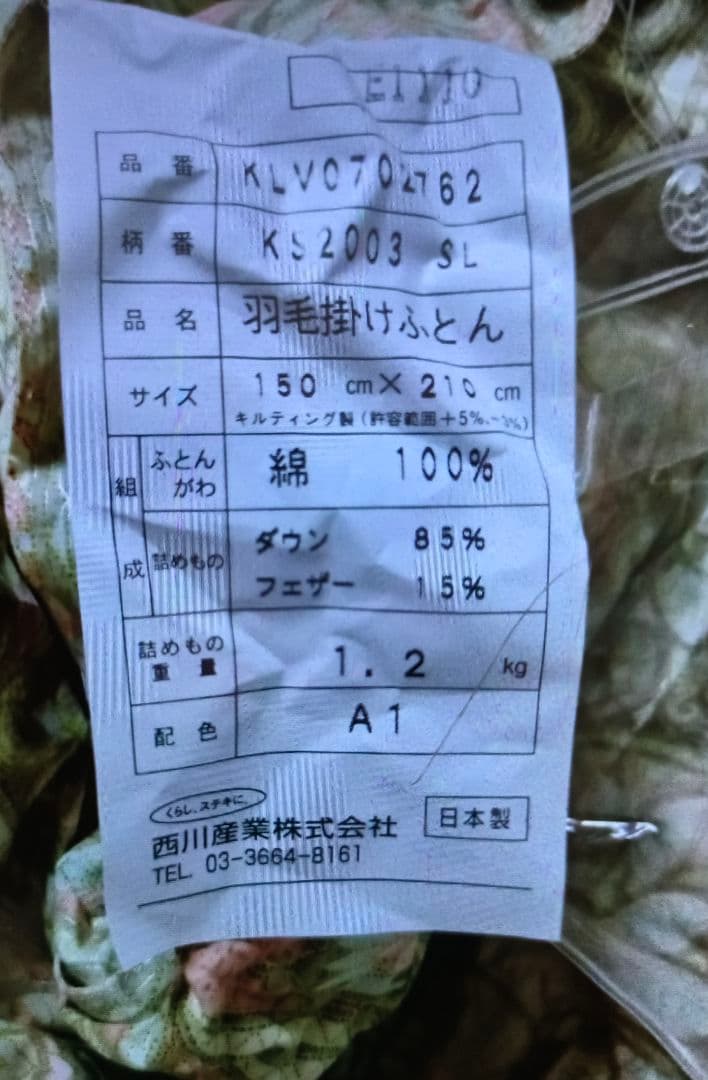 E1110
品番 KLV0702762
柄番 KS2003 SL
品名 羽毛掛けふとん
サイズ 150 cm×210 cm
キルティング製(許容範囲+5%、-3%)
組成 ふとんがわ 綿 100%
詰めもの ダウン 85%
フェザー 15%
詰めもの重量 1.2 kg
配色 A1
くらし、ステキに。
西川産業株式会社 日本製
TEL. 03-3664-8161